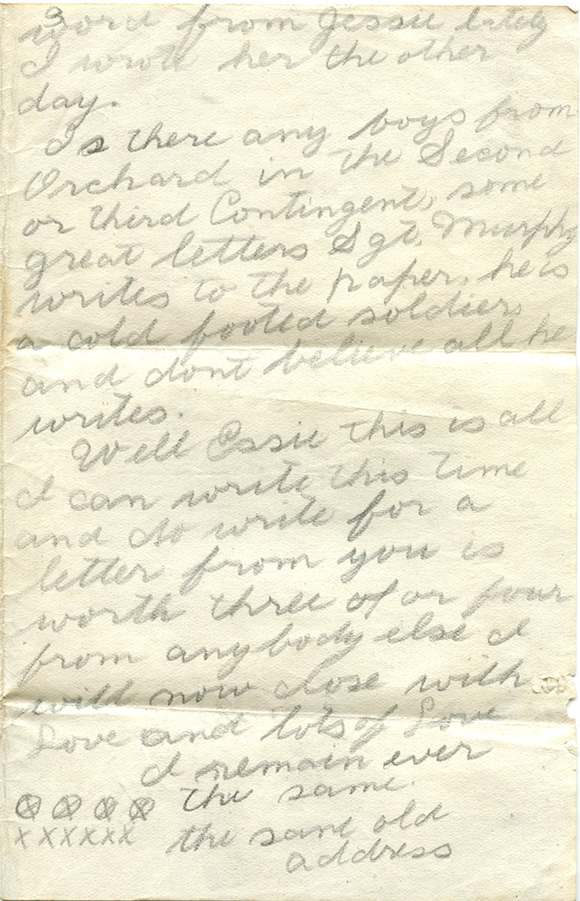 3
word from Jessie lately
I wrote her the other
day.
Is there any boys from
Orchard in the Second
or third Contingent, some
great letters Sgt. Murphy
writes to the paper, he is
a cold footed soldier,
and dont believe all he
writes.
Well Essie this is all
I can write this time
and do write for a
letter from you is
worth three of or four
from any body else I
will now close with
Love and lots of Love
I remain ever
the same.
the same old
address
⊗ ⊗ ⊗ ⊗
x x x x x x